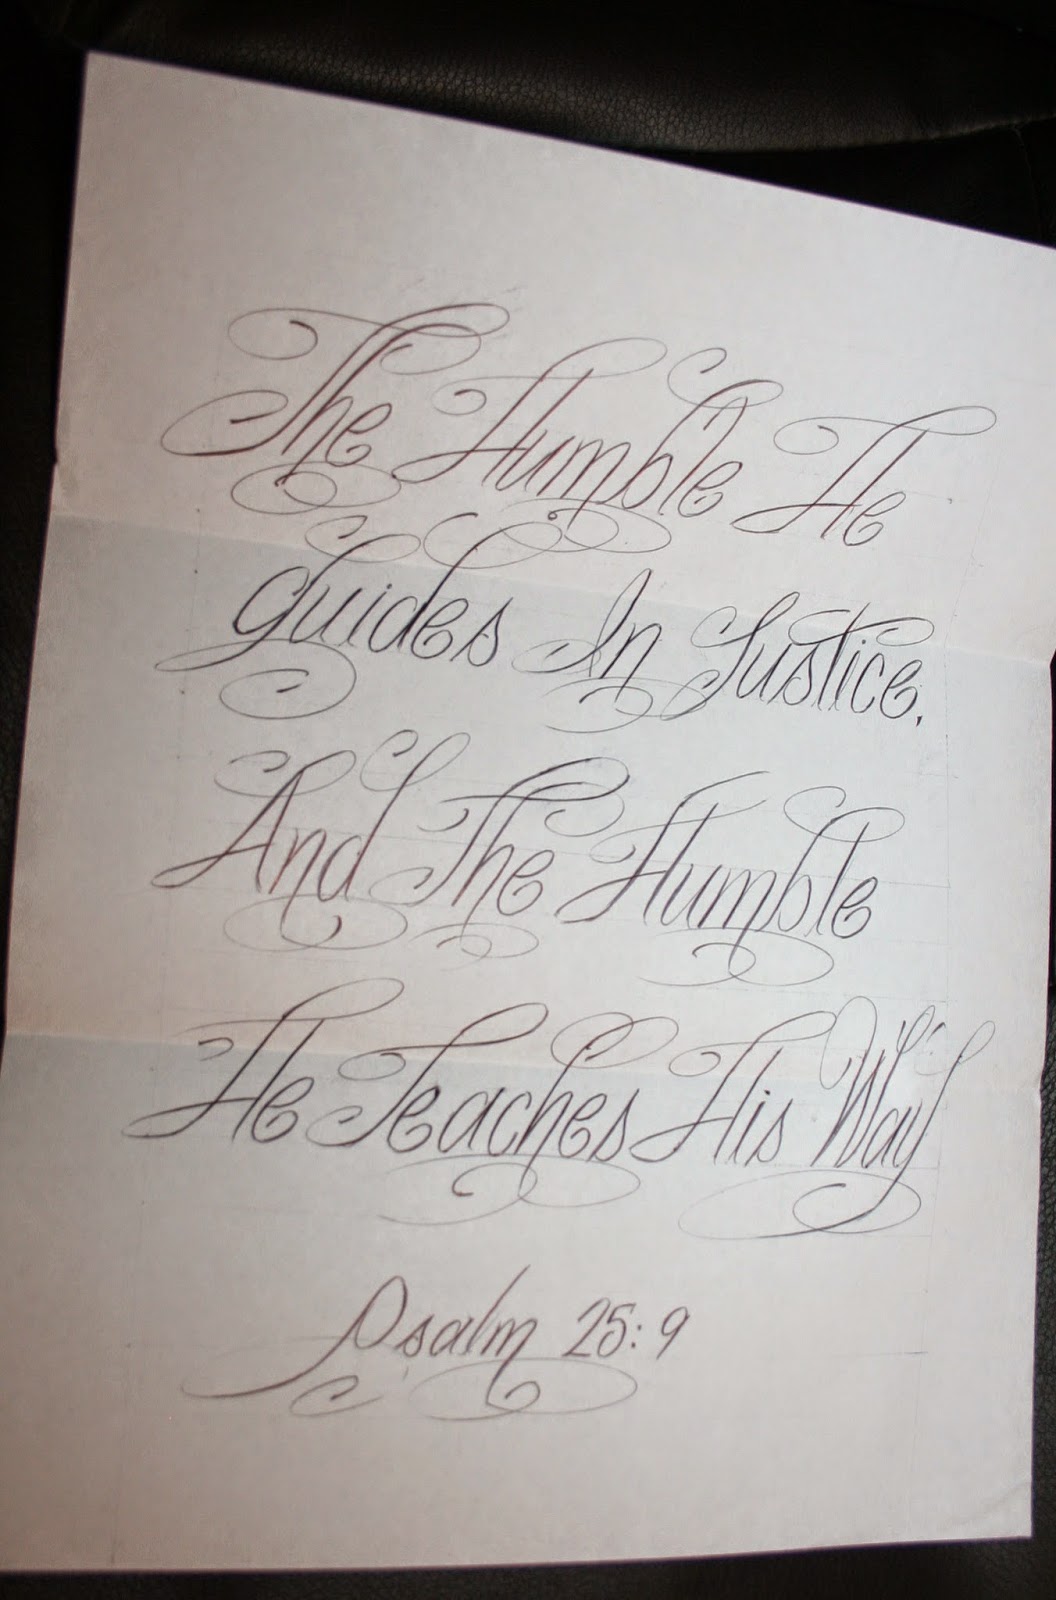 The Humble He
guides In Justice,
And The Humble
He Teaches His Way
Psalm 25:9